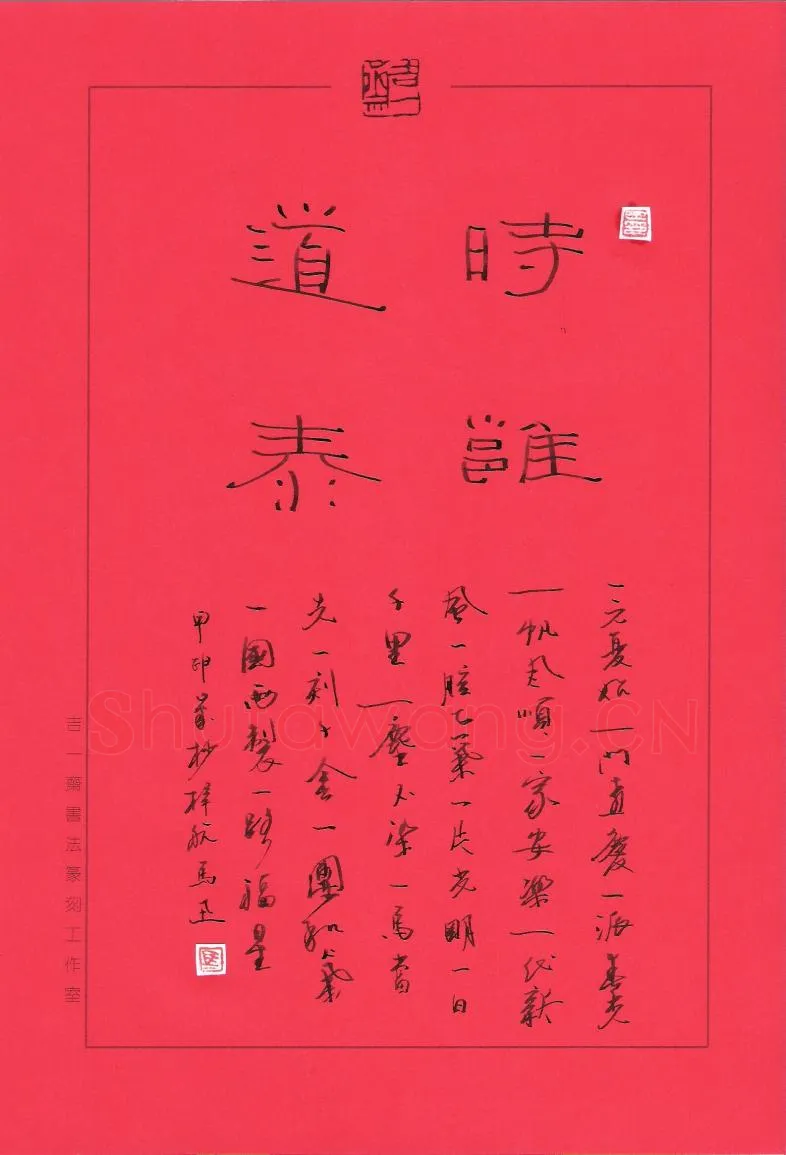 時雝
道泰
一元复始一門慶一派春光
一帆風順一家安樂一代新
風一腔正氣一片光明一日
千里一塵不染一馬當
先一刻千金一團和氣
一國兩製一路福星
甲申歲杪擇航馬丞
吉一齋書法篆刻工作室
Shufawang.CN